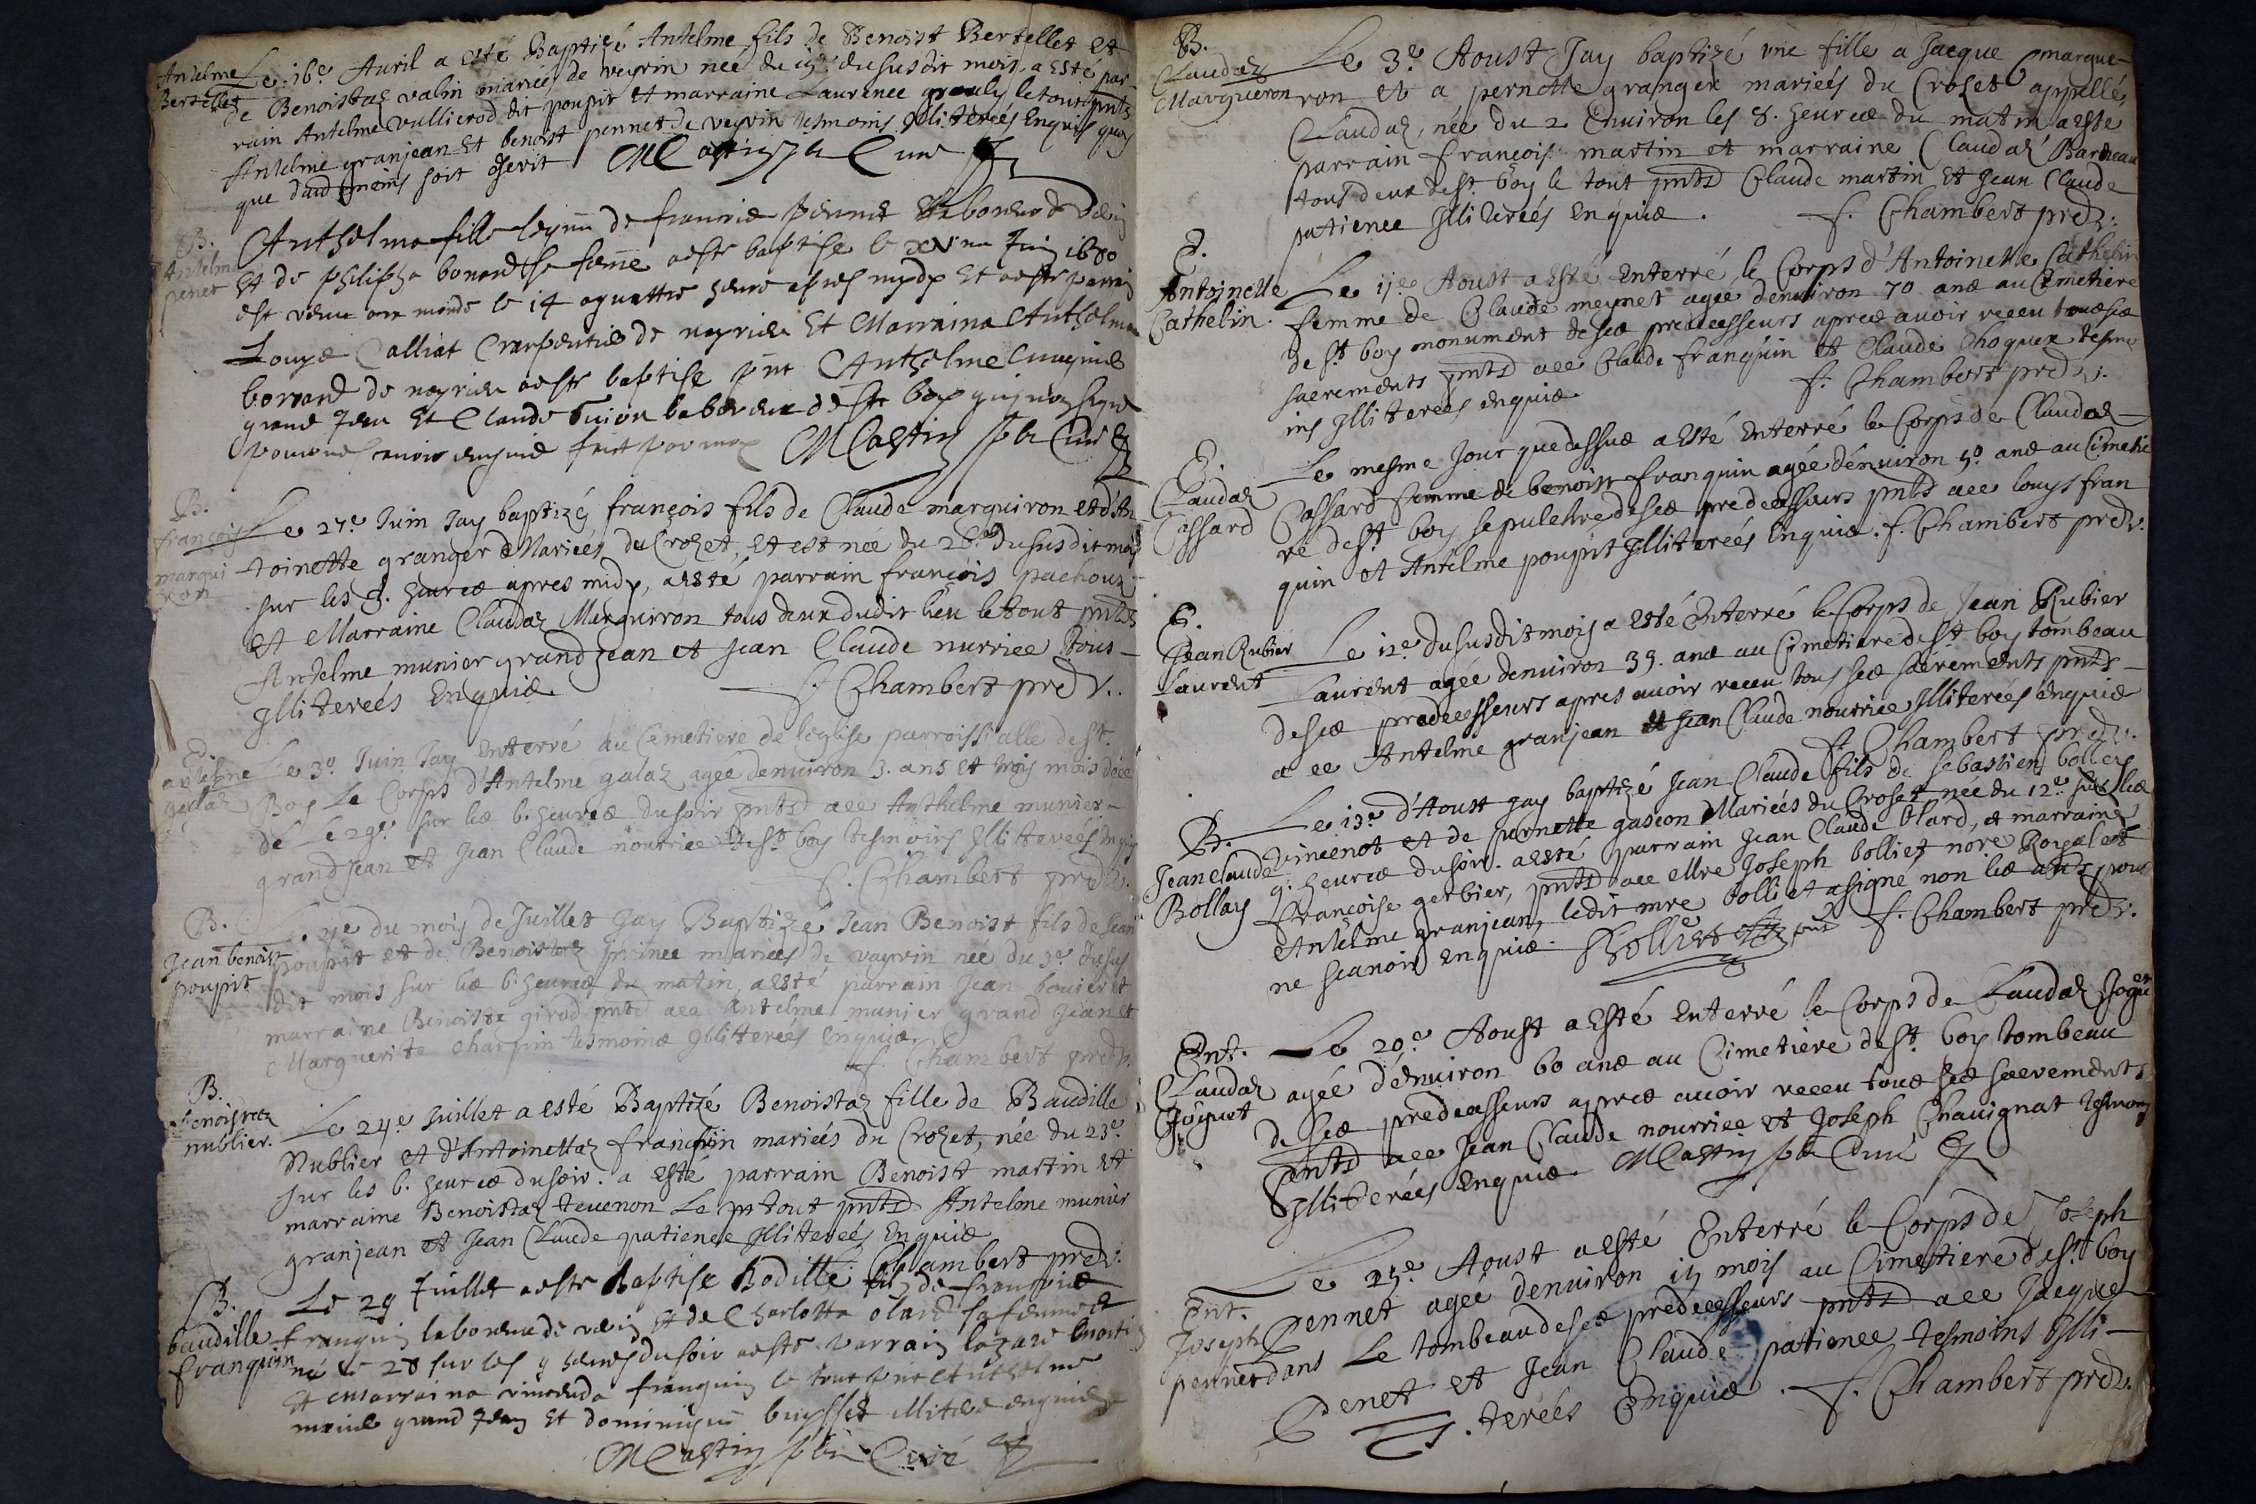 Antelme
Bertellet
Le 16e Auril a esté Baptizé Antelme fils de Benoist Bertellet et
de Benoistaz valin mariés de veyrin née du dususdit mois a esté par-
rain Antelme vullierod dit poupit et marraine Laurence le tout pnts
Antelme granjean et benoist pennet de veyrin tesmoins Illiterés Enquis
que dandt moins soit escrit MCastin Curé
B.
Antelma
penet
Anthelma fille legme de francois pennet laboreur de
Et de philipha bonard sa femme aeste baptise le Juin 1680
est venue au monde le 14 aquattre heure apres mydy Et aeste parrin
Louys Calliat Crarpentier de neyrieu Et Marraina Anthelma
bonard de neyrieu aeste baptise pnt Anthelme
grand Jean Et Claude Guion laboreur de St boy qui non signe
pour ne scavoir enquis fait par moy MCastin pbr Curé
B.
françois
marqui
ron
Le 27e Juin Jay baptizé françois fils de Claude marquiron et d'An
toinette granger Mariés du Crozet, et est née du 26e dususdit mois
sur les 3. heures apres midy, aesté parrain françois pachoux
et Marraine Claudaz Marquiron tous deux dudit lieu le tout pnts
Antelme munier grandJean et Jean Claude nurrice tous
Illiterés Enquis f. Chambert predr.
E.
antelme
galaz
Le 30 Juin Jay Enterré au Cemetiere de leglise parroissialle de St.
Boy Le Corps d'Antelme galaz agée denuiron 3. ans et trois mois déce
dé Le 29e. sur les 6. heures dusoir pnts aee Anthelme munier
grandJean et Jean Claude nourrice de St boy tesmoins Illiterés Enquis
f. Chambert predr.
B.
Jean benoist
poupit
du mois de Juillet Jay Baptizé Jean Benoist fils de Jean
poupit et de Benoistaz mariés de vayrin née du 3e dusus
dit mois sur les 6. heures du matin, aesté parrain Jean bouier et
marraine Benoiste girod pnts aee Antelme munier grand Jean et
Marguerite charpin tesmoins Illiterés Enquis.
f. Chambert predr.
B.
benoistaz
nublier.
Le 24e Juillet a esté Baptizé Benoistaz fille de Baudille
Nublier et d'Antoinettaz franquin mariés du Crozet, née du 23e.
sur les 6. heures dusoir. a esté parrain Benoist martin et
marraine Benoistaz teuenon Le tout pnts Antelme munier
granjean et Jean Claude patience Illiterés Enquis
f. Chambert predr.
B.
baudille
franquin
Le 29 Juillet aeste Baptise Bodille fils de francois
franquin laboreur de vein Et de Charlotte olard sa femme et
né le 28 sur les 9 heures du soir aeste parrain lazare martin
et marraina vincenda franquin le tout pnt Anthelme
munier grand Jean Et dominique buysset illiteré enquis
MCastin pbr Curé
B.
Claudaz
Marqueron
Le 3e. Aoust Jay baptizé vne fille a Jacque marque-
ron et a pernette granger mariés du Crozet appellée
Claudaz, née du 2 Enuiron les 8. heures du matin a este
parrain françois martin et marraine Claudaz
tous deux de St. boy le tout pnts Claude martin et Jean Claude
patience Illiterés enquis. f. Chambert predr.
E.
Antoinette
Cathelin.
Le Aoust a esté Enterré le Corps d'Antoinette Cathelin
femme de Claude meynet agée denuiron 70 ans au Cimetiere
de St boy monument de ses predecesseurs apres auoir receu tous ses
sacrements pnts aee Claude franquin et Claude choquex tesmo
ins Illiterés enquis f. Chambert predr.
E.
Claudaz
Cassard
Le mesme Jour que dessus a esté Enterré le Corps de Claudaz
Cassard femme de benoist franquin agée dénuiron 50 ans au Cimetie
re de St. boy sepulchre de ses predecesseurs pnts aee louys fran
quin et Antelme poupit Illiterés Enquis. f. Chambert predr.
E.
Jean Rubier
Laurent
Le 12e dusudit mois a esté Enterré le Corps de Jean Rubier
Laurent agée denuiron 35. ans au Cimetiere de St. boy tombeau
de ses predecesseurs apres auoir receu tous ses sacrements pnts
aee Antelme granjean et Jean Claude nourrice Illiterés enquis
f. Chambert predr.
B.
Jean claude
Bollay
Le 13e. d'Aoust Jay baptizé Jean Claude fils de sebastien bolley
vincenot et de pernette gascon Mariés du Croset née du 12e. sur les
9. heures dusoir. a esté parrain Jean Claude blard, et marraine
Françoise gerbier, pnts aee Mre Joseph bolliet nore Royal et
Antelme granjean, ledit mre bolliet a signé non les pour
ne scauoir enquis. JBolliet pnt f. Chambert predr.
Ent.
Claudaz
Joguet
Le 20e Aoust a esté Enterré le Corps de Claudaz Joguet
agée d'énuiron 60 ans au Cimetiere de St. boy tombeau
de ses predecesseurs apres auoir receu tous ses sacrements
pnts aee Jean Claude nourrice et Joseph Chauignat tesmoins
Illiterés Enquis MCastin pbr Curé
Ent.
Joseph
pennet
Le Aoust a esté Enterré le Corps de Joseph
Pennet agée denuiron mois au Cimetiere de St. boy
dans Le tombeau de ses predecesseurs pnts aee Jacque
Penet et Jean Claude patience tesmoins Illi-
terés Enquis. f. Chambert predr.